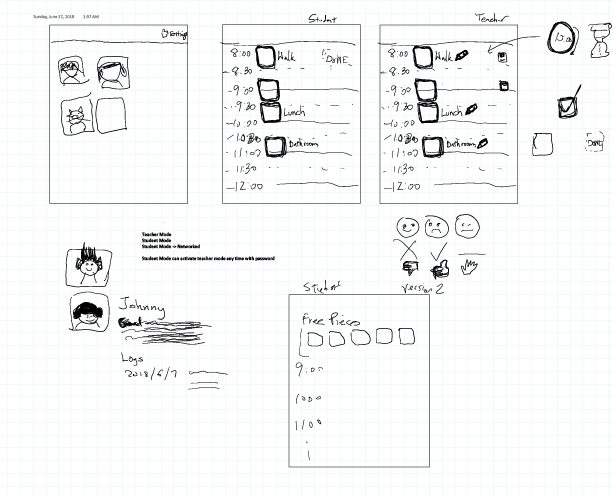 Sunday, June 17, 2018 1:07 AM
Settings
Student
8:00 Walk DONE
8:30
9:00
9:30 Lunch
10:00
10:30 Bathroom
11:00
11:30
12:00
Teacher
8:00 Walk
8:30
9:00
9:30 Lunch
10:00
10:30 Bathroom
11:00
11:30
12:00
DONE
Teacher Mode
Student Mode
Student Mode -> Networked
Student Mode can activate teacher mode any time with password
Johnny
Logs
2018/6/7
Version 2
Student
Free Pieces
9:00
1000
1100